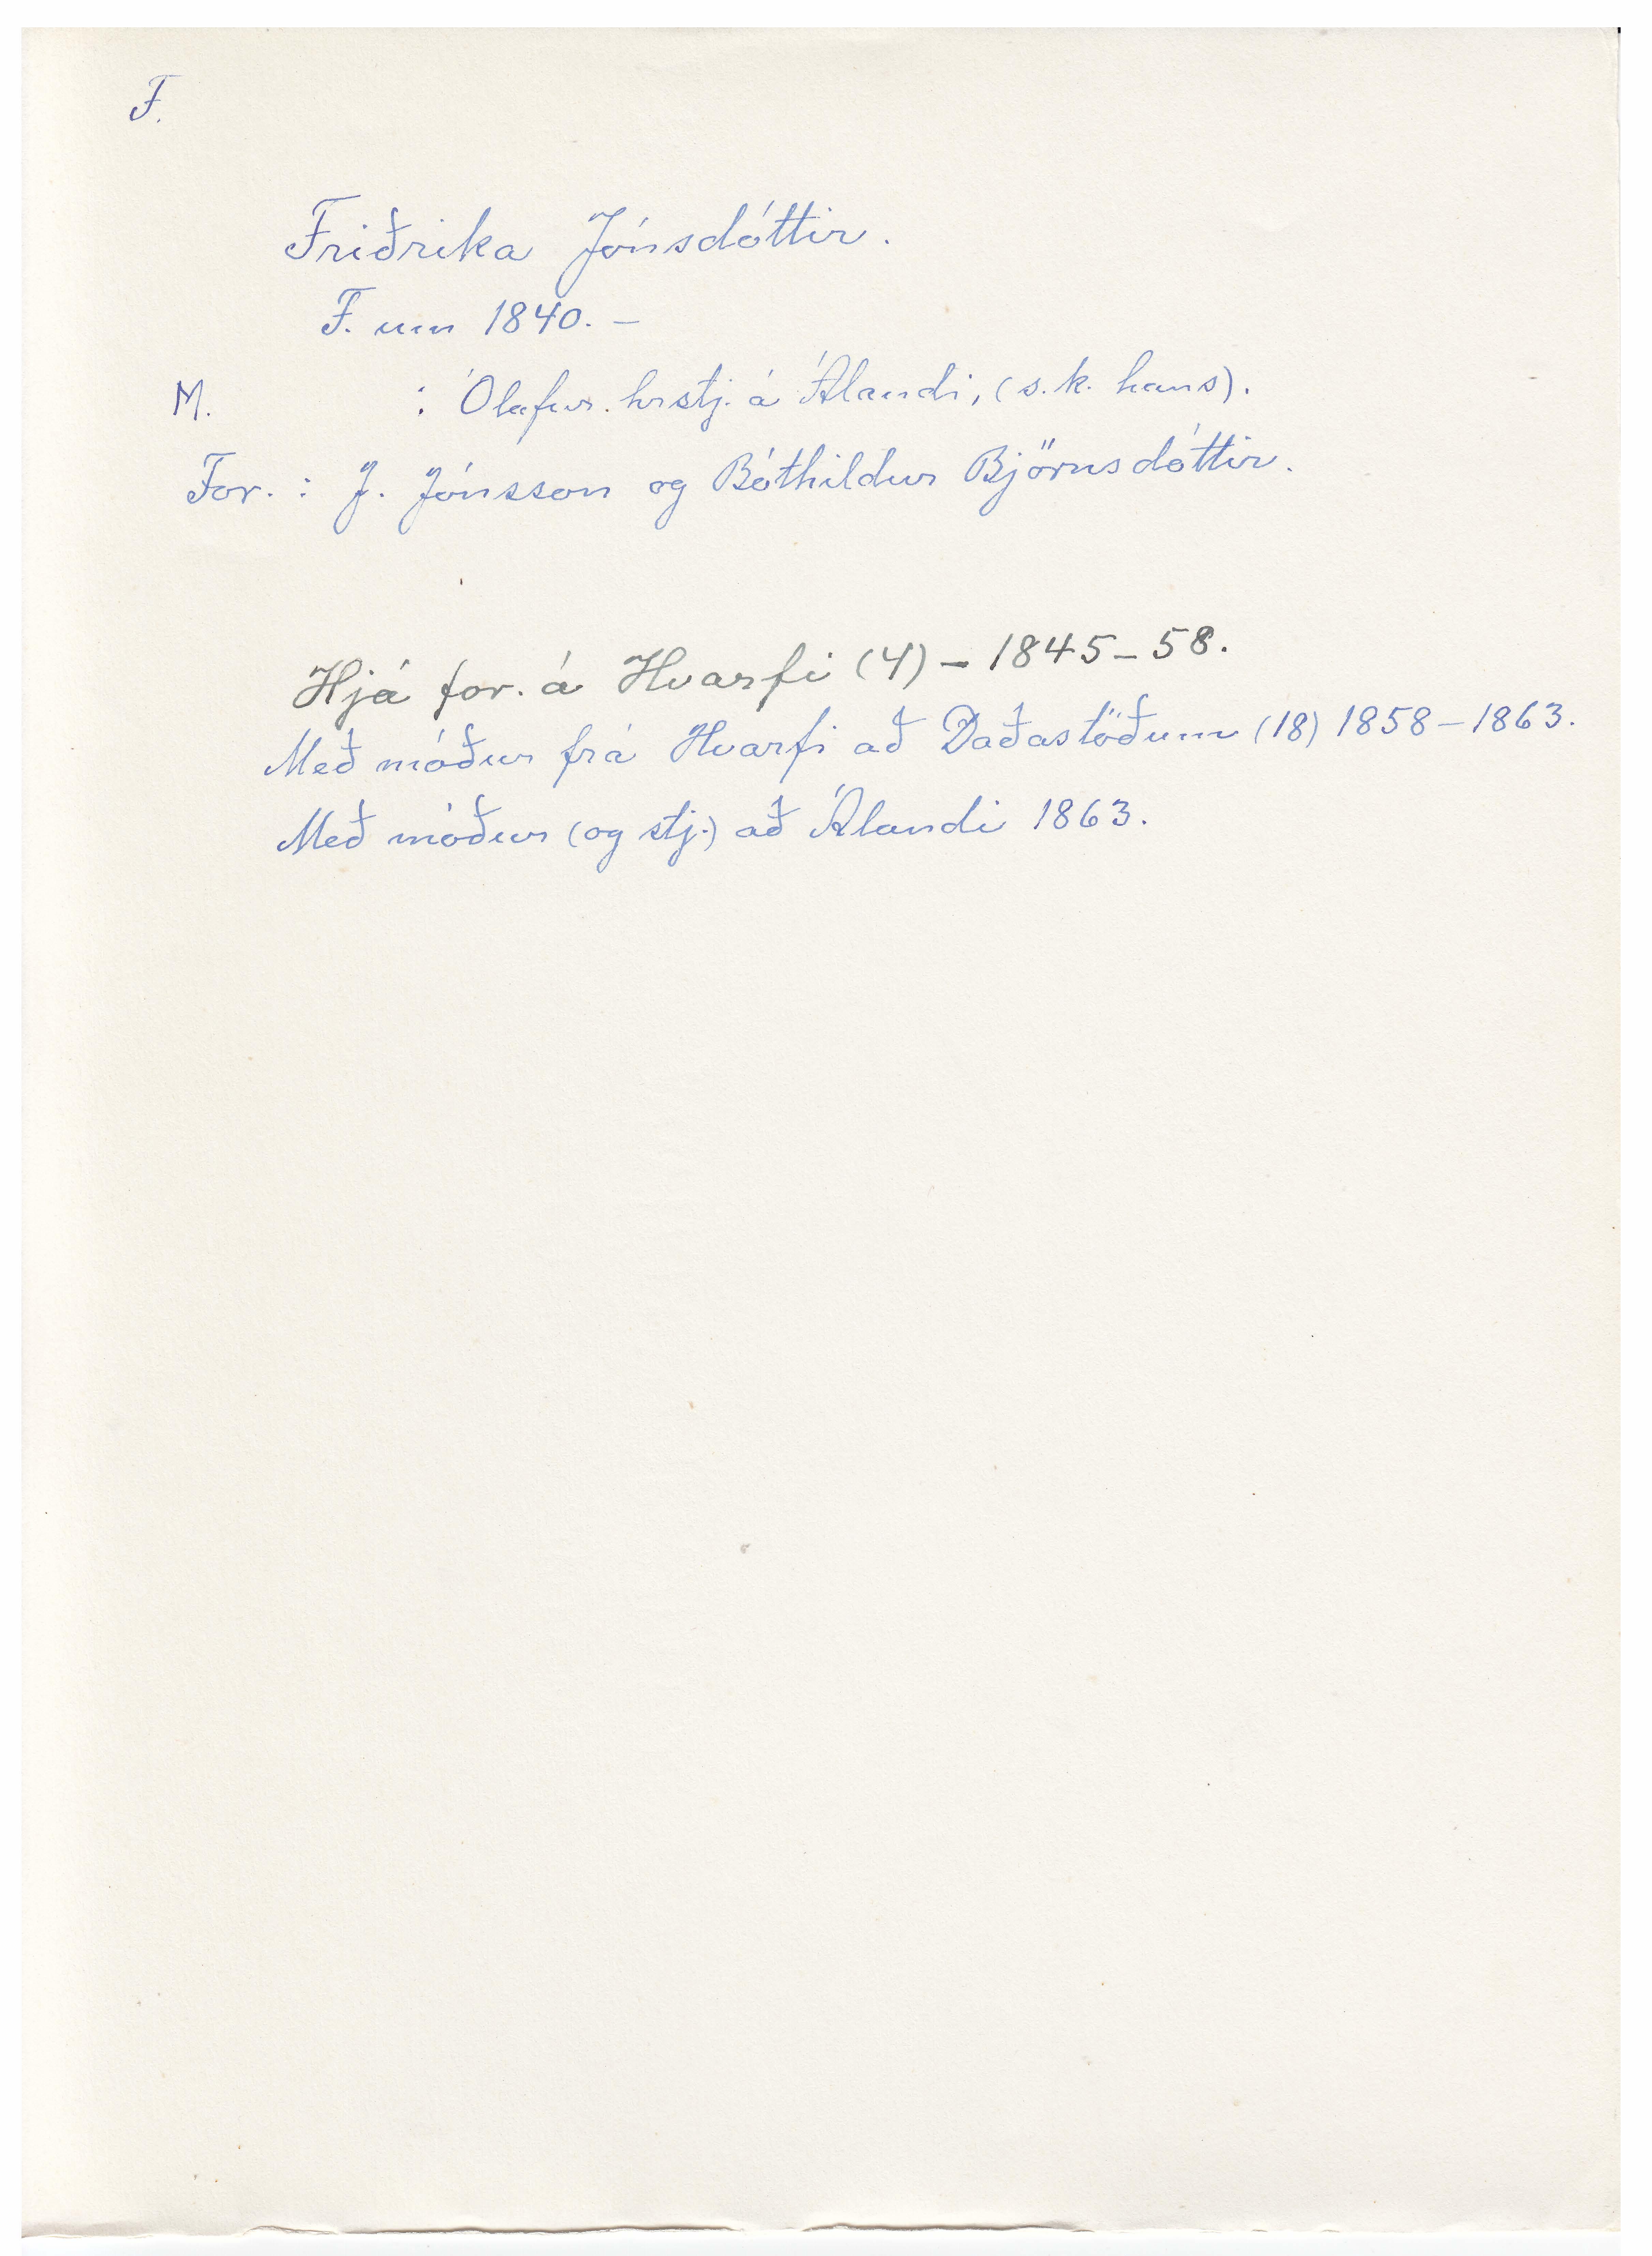 F.
Friðrika Jónsdóttir.
F. um 1840. –
M. : Ólafur. hrstj. á Álandi, (s.k. hans).
For. : J. Jónsson og Bóthildur Björnsdóttir.
Hjá for. á Hvarfi (4) – 1845–58.
Með móður frá Hvarfi að Daðastöðum (18) 1858–1863.
Með móður (og stj.) að Álandi 1863.